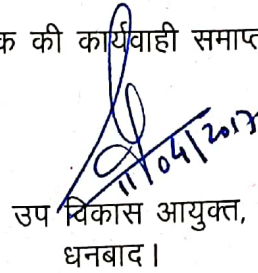 क की कार्यवाही समाप्त
11/04/2017
उप विकास आयुक्त,
धनबाद।